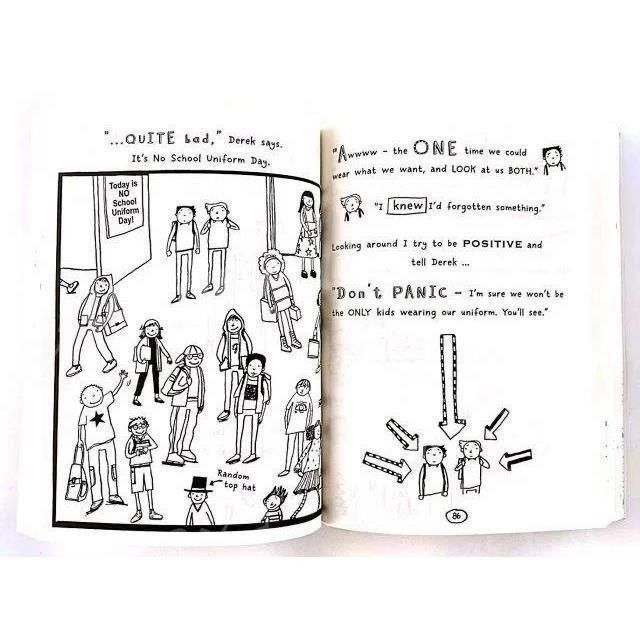 "...QUITE bad," Derek says.
It's No School Uniform Day.
Today is
NO
School
Uniform
Day!
Random
top hat
"Awwww – the ONE time we could
wear what we want, and LOOK at us BOTH."
"I knew I'd forgotten something."
Looking around I try to be POSITIVE and
tell Derek ...
"Don't PANIC – I'm sure we won't be
the ONLY kids wearing our uniform. You'll see."
86